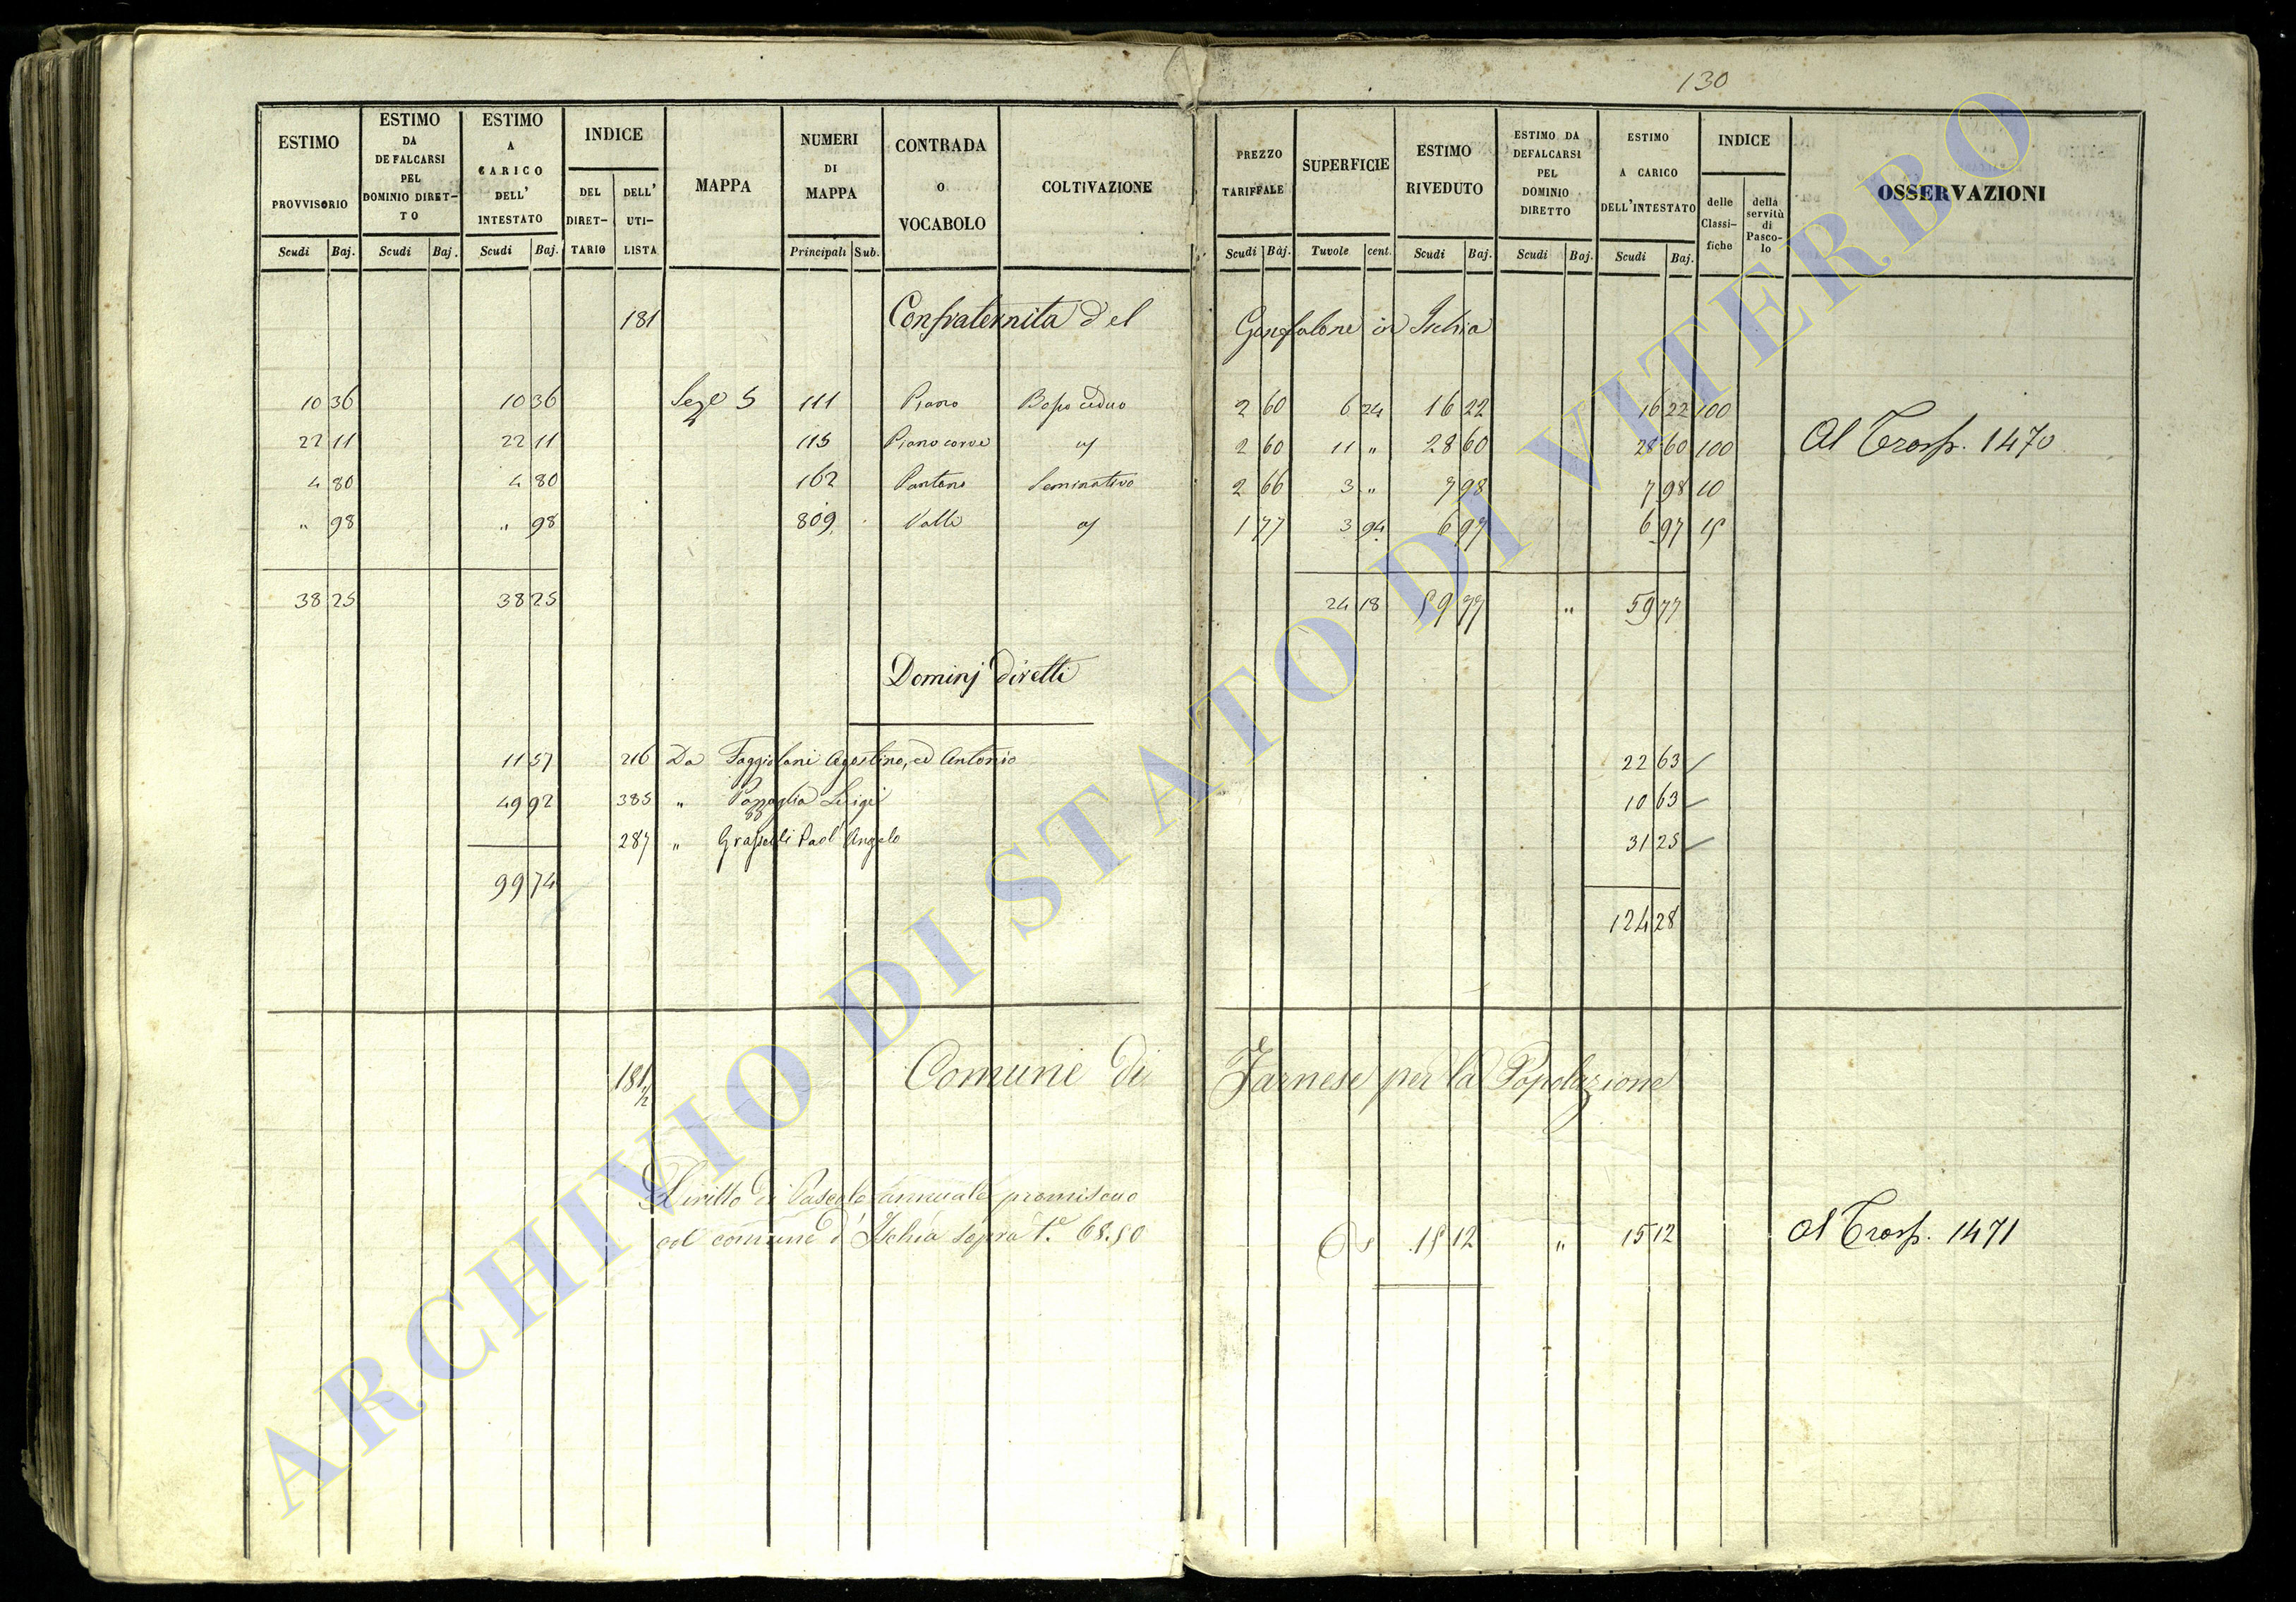 130
ESTIMO PROVVISORIO Scudi Baj.
ESTIMO DA DEFALCARSI PEL DOMINIO DIRETTO Scudi Baj.
ESTIMO A CARICO DELL' INTESTATO Scudi Baj.
INDICE DEL DIRETTARIO DELL' UTILISTA
MAPPA
NUMERI DI MAPPA Principali Sub.
CONTRADA O VOCABOLO
COLTIVAZIONE
PREZZO TARIFFALE Scudi Baj.
SUPERFICIE Tavole cent.
ESTIMO RIVEDUTO Scudi Baj.
ESTIMO DA DEFALCARSI PEL DOMINIO DIRETTO Scudi Baj.
ESTIMO A CARICO DELL'INTESTATO Scudi Baj.
INDICE delle Classifiche della servitù di Pascolo
OSSERVAZIONI
181 Confraternita del Gonfalone in Ischia
10 36 10 36 Sez.e 5 111 Piano Bosco ceduo 2 60 6 24 16 22 16 22 100
22 11 22 11 115 Piano 2 60 11 " 28 60 28 60 100 Al Trasp. 1470
4 80 4 80 162 Pantano Seminativo 2 66 3 " 7 98 7 98 10
" 98 " 98 809 Valle 1 77 3 94 6 97 6 97 15
38 25 38 25 24 18 59 77 " 59 77
Dominj diretti
11 57 216 Da Faggiolani Agostino, ed Antonio 22 63
49 92 385 " Pazzaglia Luigi 10 63
287 " Paol'Angelo 31 25
99 74
124 28
181 1/2 Comune di Farnese per la Popolazione
Diritto di Pascolo annuale promiscuo
col comune d'Ischia sopra T.e 68.50 15 12 " 15 12 Al Trasp. 1471
ARCHIVIO DI STATO DI VITERBO